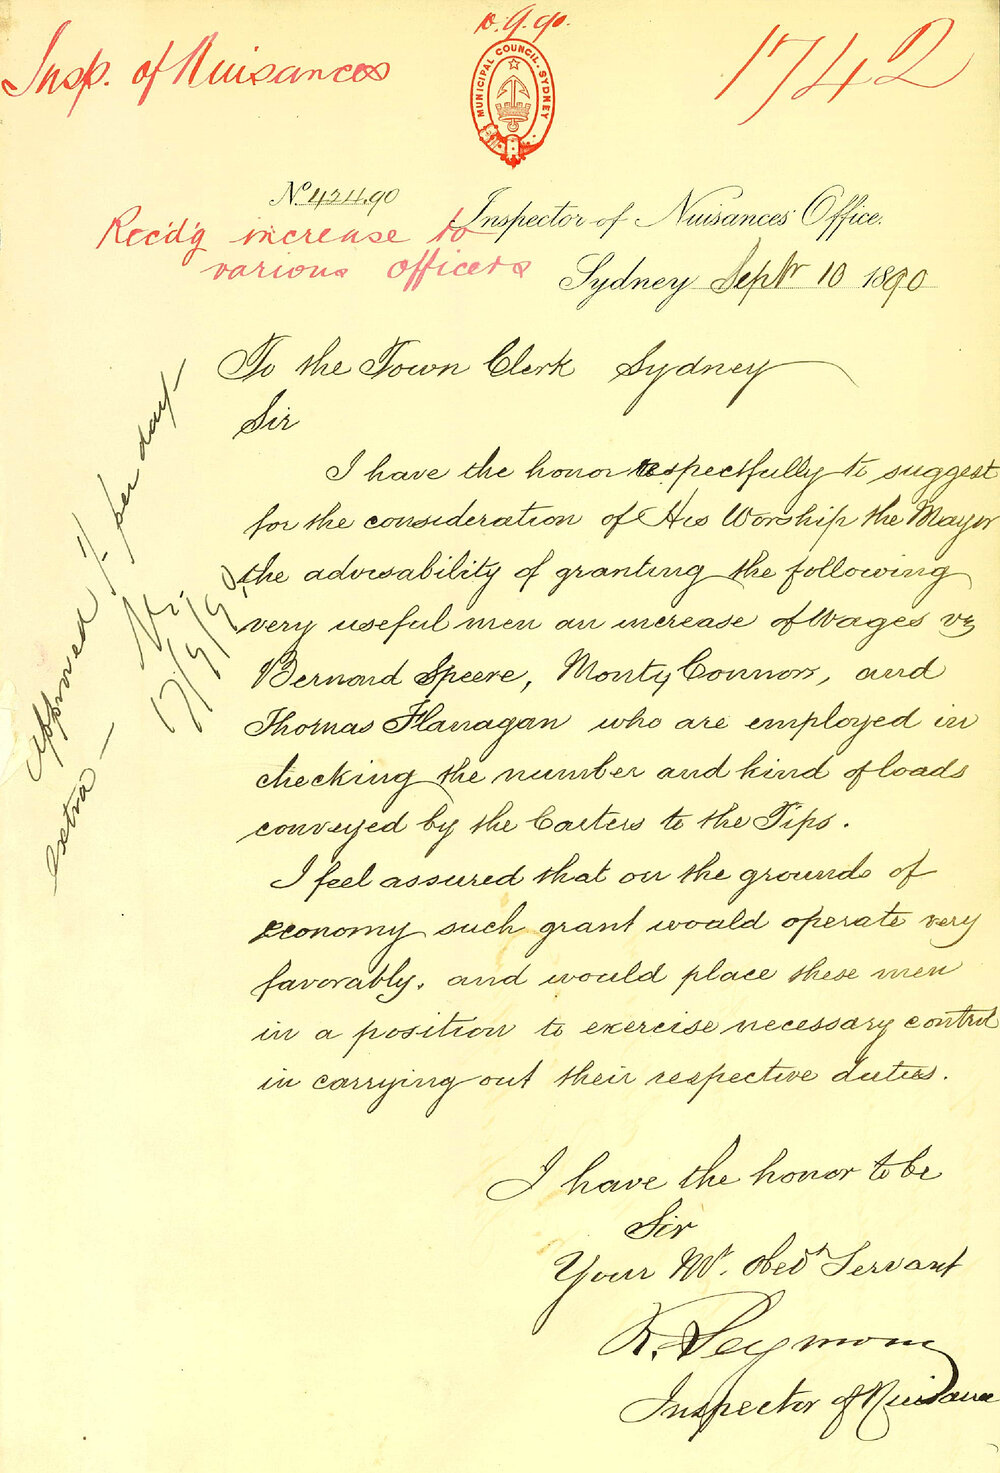 10.9.90.
Insp. of Nuisances
1742
MUNICIPAL COUNCIL, SYDNEY
No. 424.90
Inspector of Nuisances' Office.
Recd'g increase to
various officers
Sydney Septr 10 1890
To the Town Clerk Sydney
Sir
I have the honor respectfully to suggest
for the consideration of His Worship the Mayor
the advisability of granting the following
very useful men an increase of Wages viz
Bernard Speere, Monty Connors, and
Thomas Flanagan who are employed in
checking the number and kind of loads
conveyed by the Carters to the Tips.
I feel assured that on the grounds of
economy such grant would operate very
favorably. and would place these men
in a position to exercise necessary control
in carrying out their respective duties.
I have the honor to be
Sir
Your Mt. Obedt Servant
R. Seymour
Inspector of Nuisances
Approved 1/- per day
extra
17/9/90